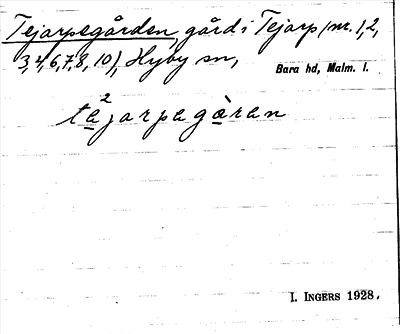 Tejarpsgården, gård i Tejarp (nr. 1, 2,
3, 4, 6, 7, 8, 10), Hyby sn,
Bara hd, Malm. l.
te²jarpsgàren
I. INGERS 1928.